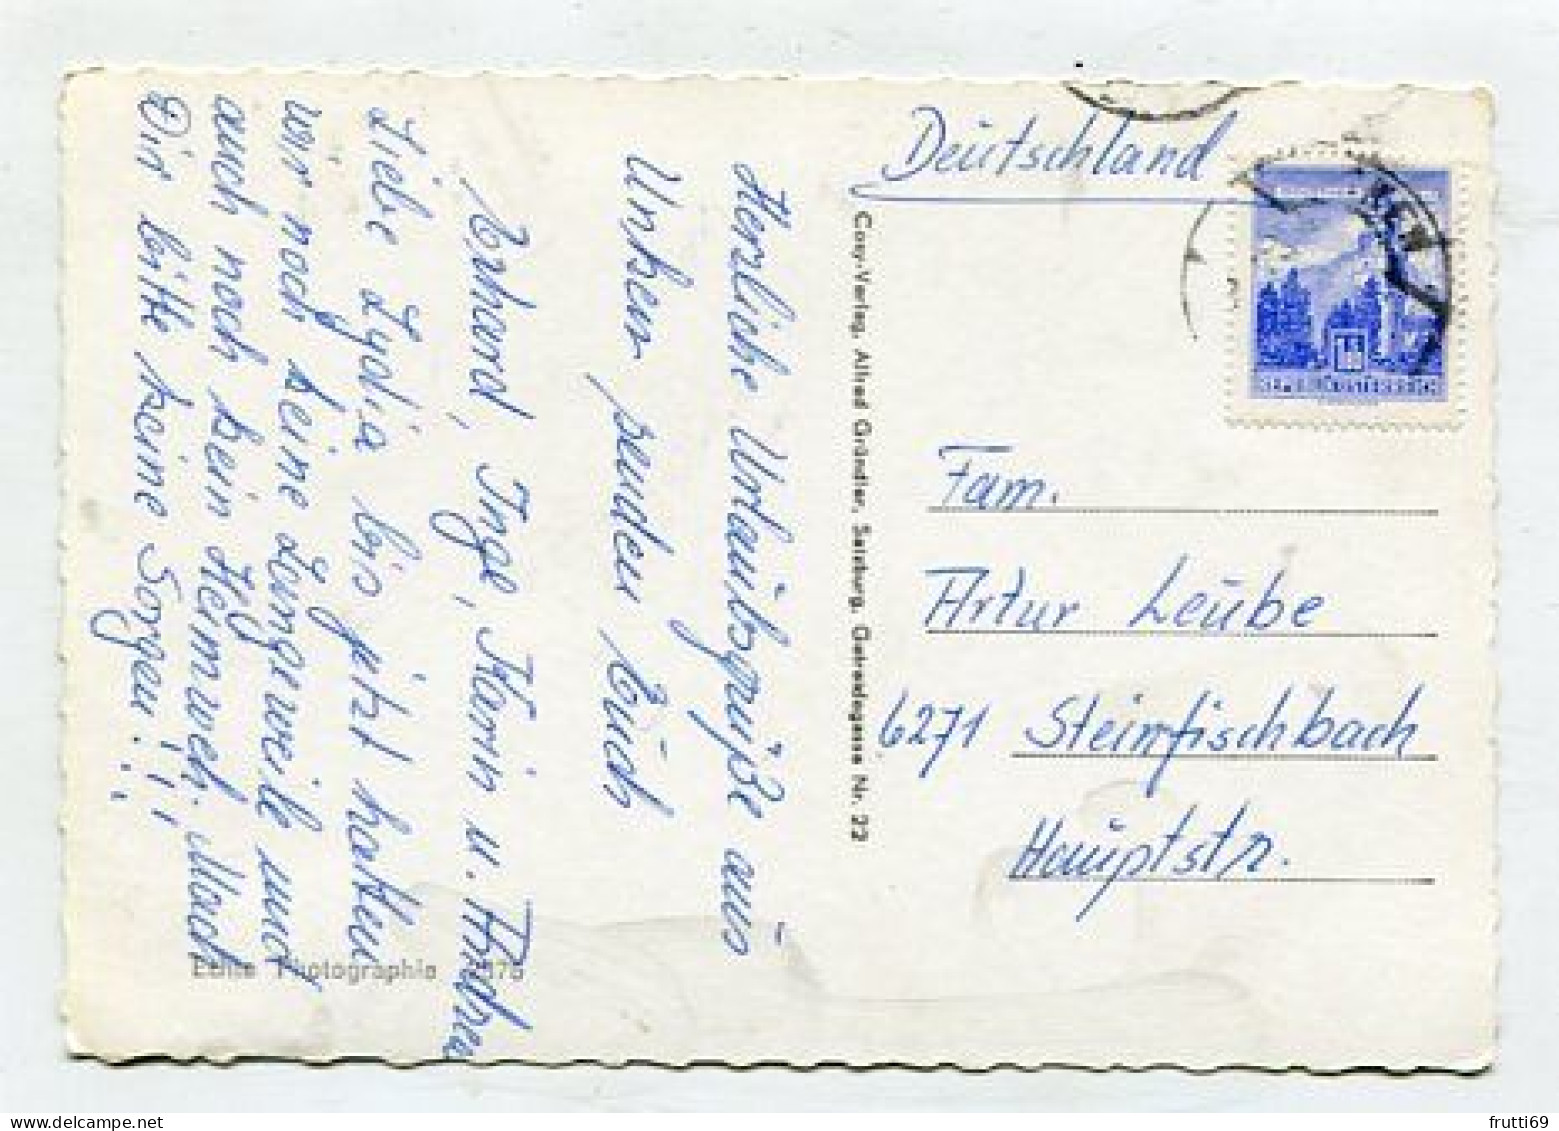 Deutschland
Fam.
Artur Leube
6271 Steinfischbach
Hauptstr.
Cosy-Verlag, Alfred Gründler, Salzburg, Getreidegasse Nr. 22
Herzliche Urlaubsgrüße aus
Unken senden Euch
Erhard, Inge, Karin u. Andrea
Liebe Lydia bis jetzt hatten
wir noch keine Langeweile und
auch noch kein Heimweh. Mach
Dir bitte keine Sorgen!!!
Echte Photographie
frutti69